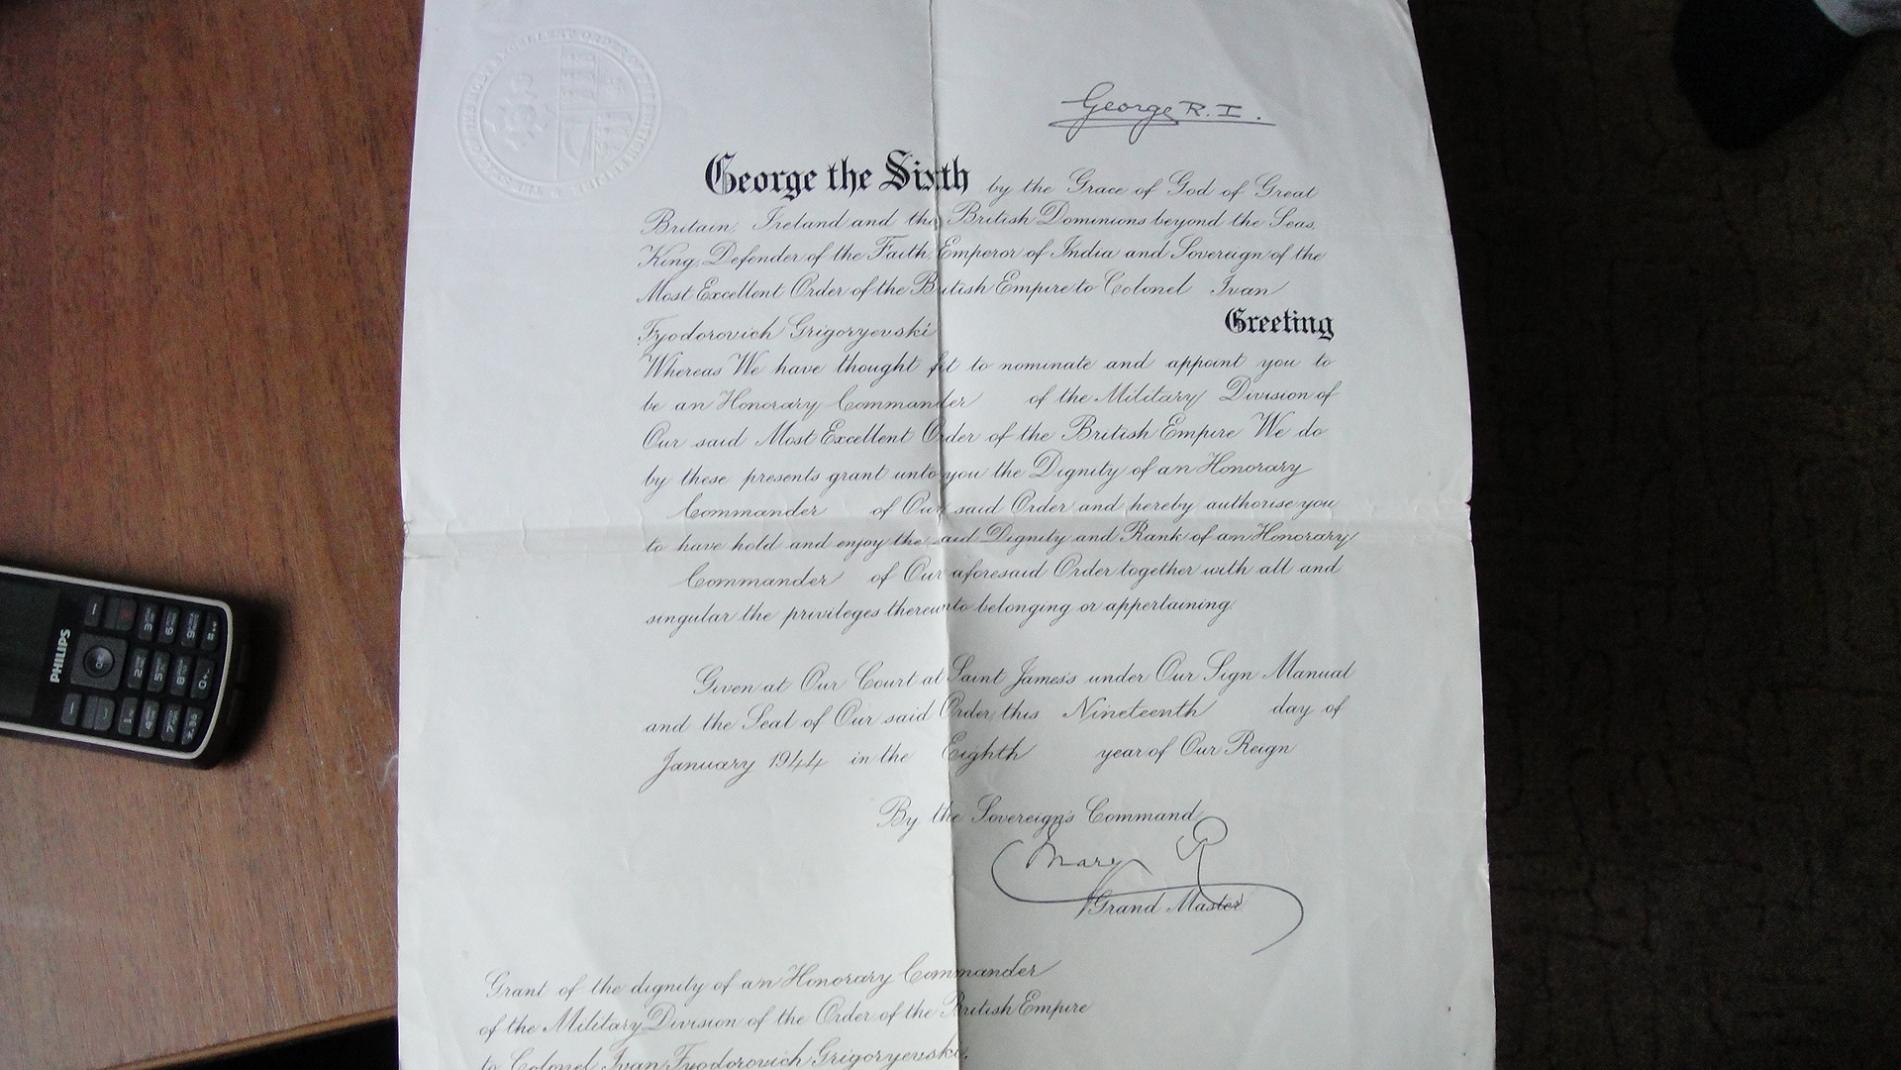 George R.I.
George the Sixth by the Grace of God of Great
Britain, Ireland and the British Dominions beyond the Seas,
King, Defender of the Faith, Emperor of India and Sovereign of the
Most Excellent Order of the British Empire to Colonel Ivan
Fyodorovich Grigoryevski Greeting
Whereas We have thought fit to nominate and appoint you to
be an Honorary Commander of the Military Division of
Our said Most Excellent Order of the British Empire We do
by these presents grant unto you the Dignity of an Honorary
Commander of Our said Order and hereby authorise you
to have hold and enjoy the said Dignity and Rank of an Honorary
Commander of Our aforesaid Order together with all and
singular the privileges thereunto belonging or appertaining.
Given at Our Court at Saint James's under Our Sign Manual
and the Seal of Our said Order this Nineteenth day of
January 1944 in the Eighth year of Our Reign
By the Sovereign's Command
Mary R
Grand Master
Grant of the dignity of an Honorary Commander
of the Military Division of the Order of the British Empire
to Colonel Ivan Fyodorovich Grigoryevski.
PHILIPS